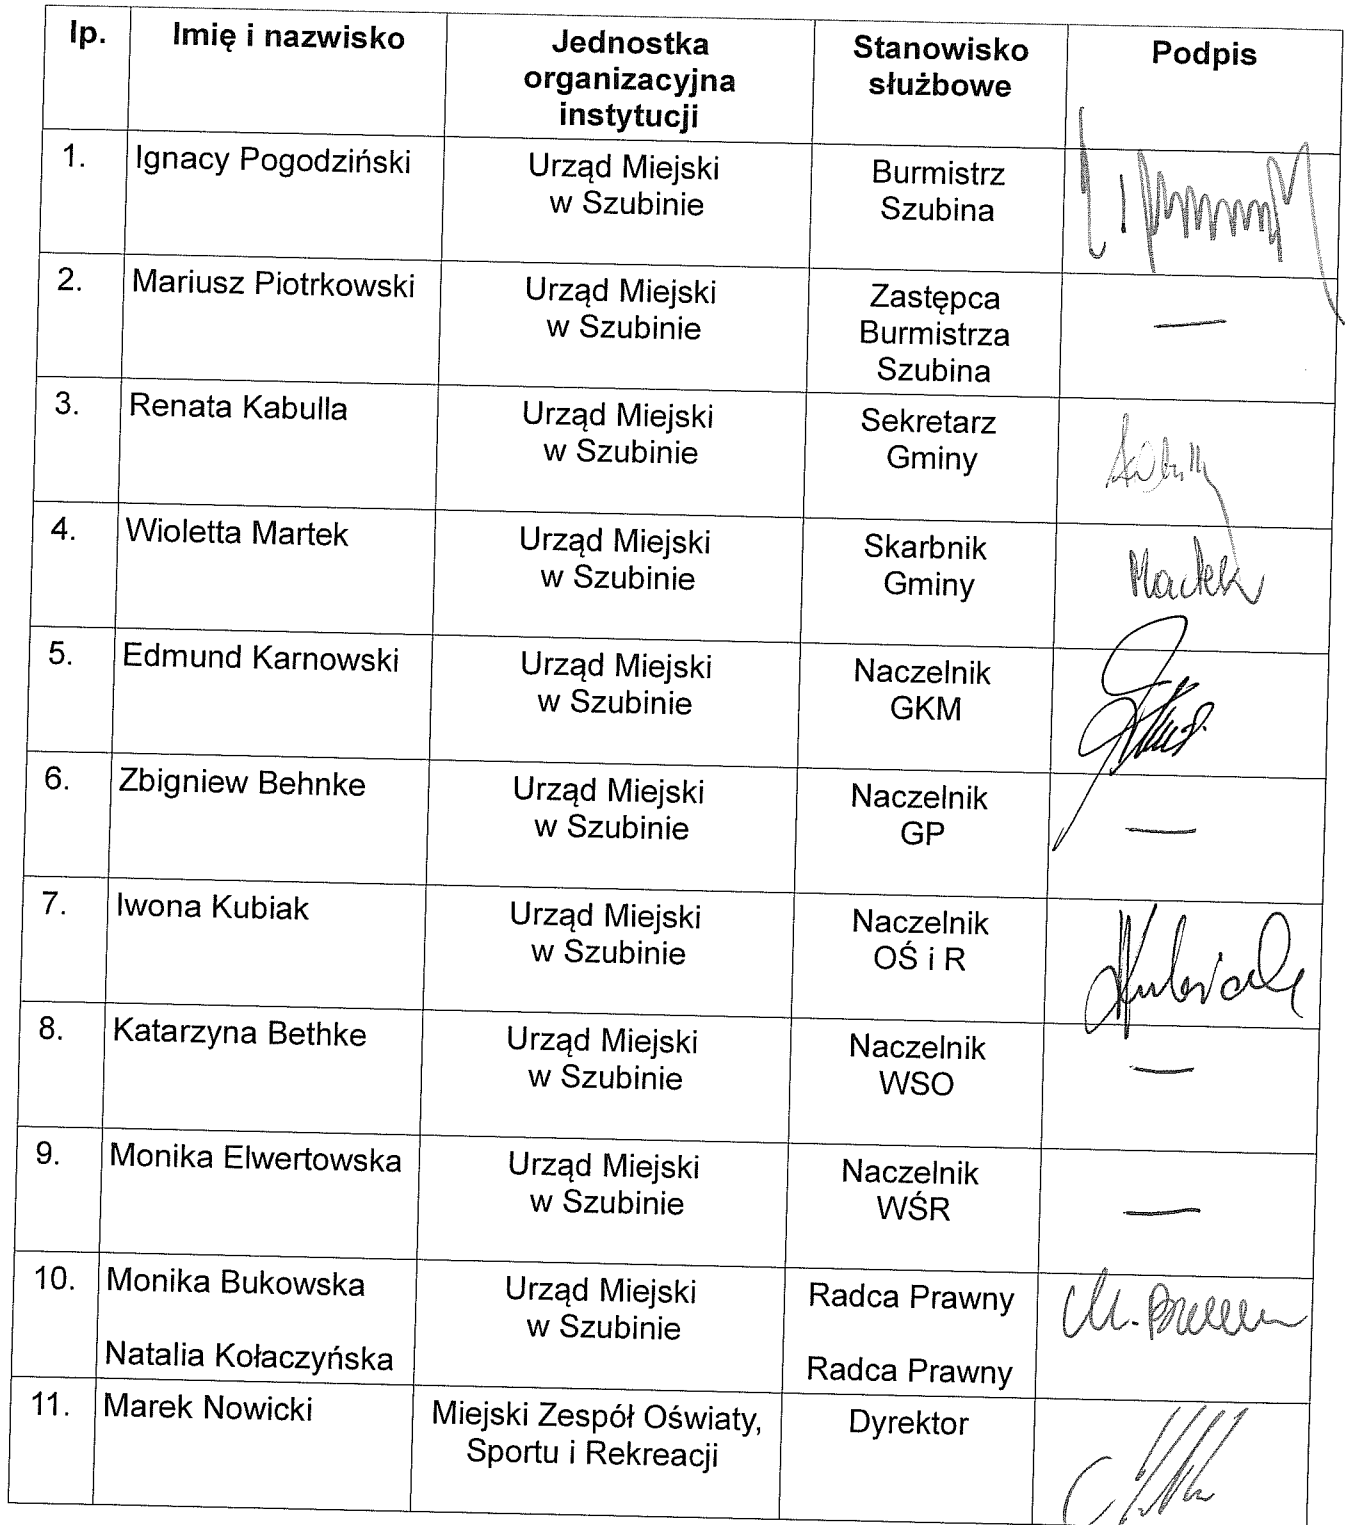 lp.
Imię i nazwisko
Jednostka
organizacyjna
instytucji
Stanowisko
służbowe
Podpis
1.
Ignacy Pogodziński
Urząd Miejski
w Szubinie
Burmistrz
Szubina
2.
Mariusz Piotrkowski
Urząd Miejski
w Szubinie
Zastępca
Burmistrza
Szubina
—
3.
Renata Kabulla
Urząd Miejski
w Szubinie
Sekretarz
Gminy
4.
Wioletta Martek
Urząd Miejski
w Szubinie
Skarbnik
Gminy
Martek
5.
Edmund Karnowski
Urząd Miejski
w Szubinie
Naczelnik
GKM
6.
Zbigniew Behnke
Urząd Miejski
w Szubinie
Naczelnik
GP
—
7.
Iwona Kubiak
Urząd Miejski
w Szubinie
Naczelnik
OŚ i R
Kubiak
8.
Katarzyna Bethke
Urząd Miejski
w Szubinie
Naczelnik
WSO
—
9.
Monika Elwertowska
Urząd Miejski
w Szubinie
Naczelnik
WŚR
—
10.
Monika Bukowska
Natalia Kołaczyńska
Urząd Miejski
w Szubinie
Radca Prawny
Radca Prawny
11.
Marek Nowicki
Miejski Zespół Oświaty,
Sportu i Rekreacji
Dyrektor